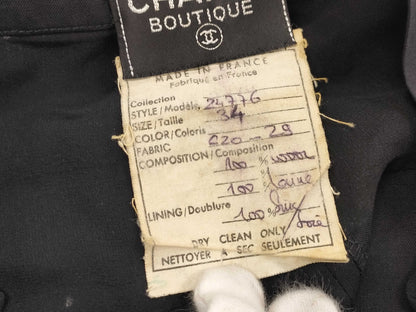 CHA
BOUTIQUE
MADE IN FRANCE
Fabriqué en France
Collection
STYLE/Modèle 24776
SIZE/Taille 34
COLOR/Coloris
FABRIC C20-29
COMPOSITION/Composition
100 % wool
100 % laine
LINING/Doublure 100 % silk
soie
DRY CLEAN ONLY
NETTOYER A SEC SEULEMENT